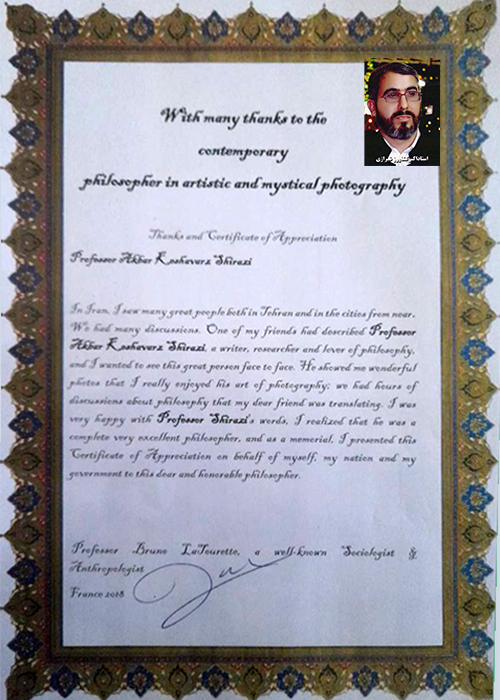 With many thanks to the
contemporary
philosopher in artistic and mystical photography
Thanks and Certificate of Appreciation
Professor Akbar Keshavarz Shirazi
In Iran, I saw many great people both in Tehran and in the cities from near.
We had many discussions. One of my friends had described Professor
Akbar Keshavarz Shirazi, a writer, researcher and lover of philosophy,
and I wanted to see this great person face to face. He showed me wonderful
photos that I really enjoyed his art of photography; we had hours of
discussions about philosophy that my dear friend was translating. I was
very happy with Professor Shirazi's words, I realized that he was a
complete very excellent philosopher, and as a memorial, I presented this
Certificate of Appreciation on behalf of myself, my nation and my
government to this dear and honorable philosopher.
Professor Bruno LaTourette, a well-known Sociologist &
Anthropologist
France 2018